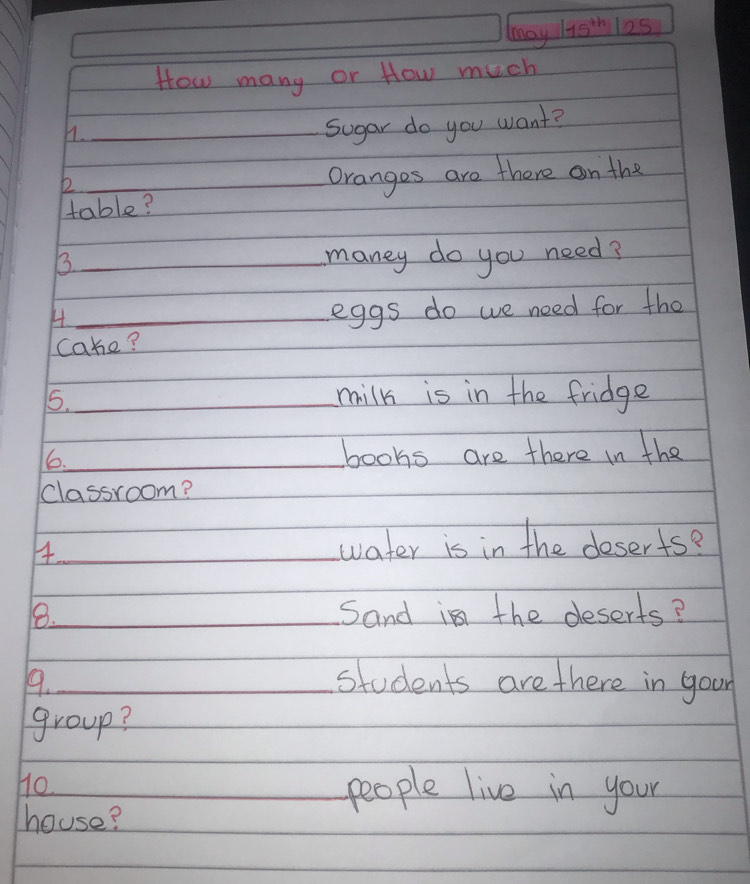 may 15th 25
How many or How much
1. Sugar do you want?
2 Oranges are there on the
table?
3. maney do you need?
4 eggs do we need for the
cake?
5. milk is in the fridge
6. books are there in the
classroom?
7. water is in the deserts?
8. Sand is the deserts?
9. Students are there in your
group?
10. people live in your
house?